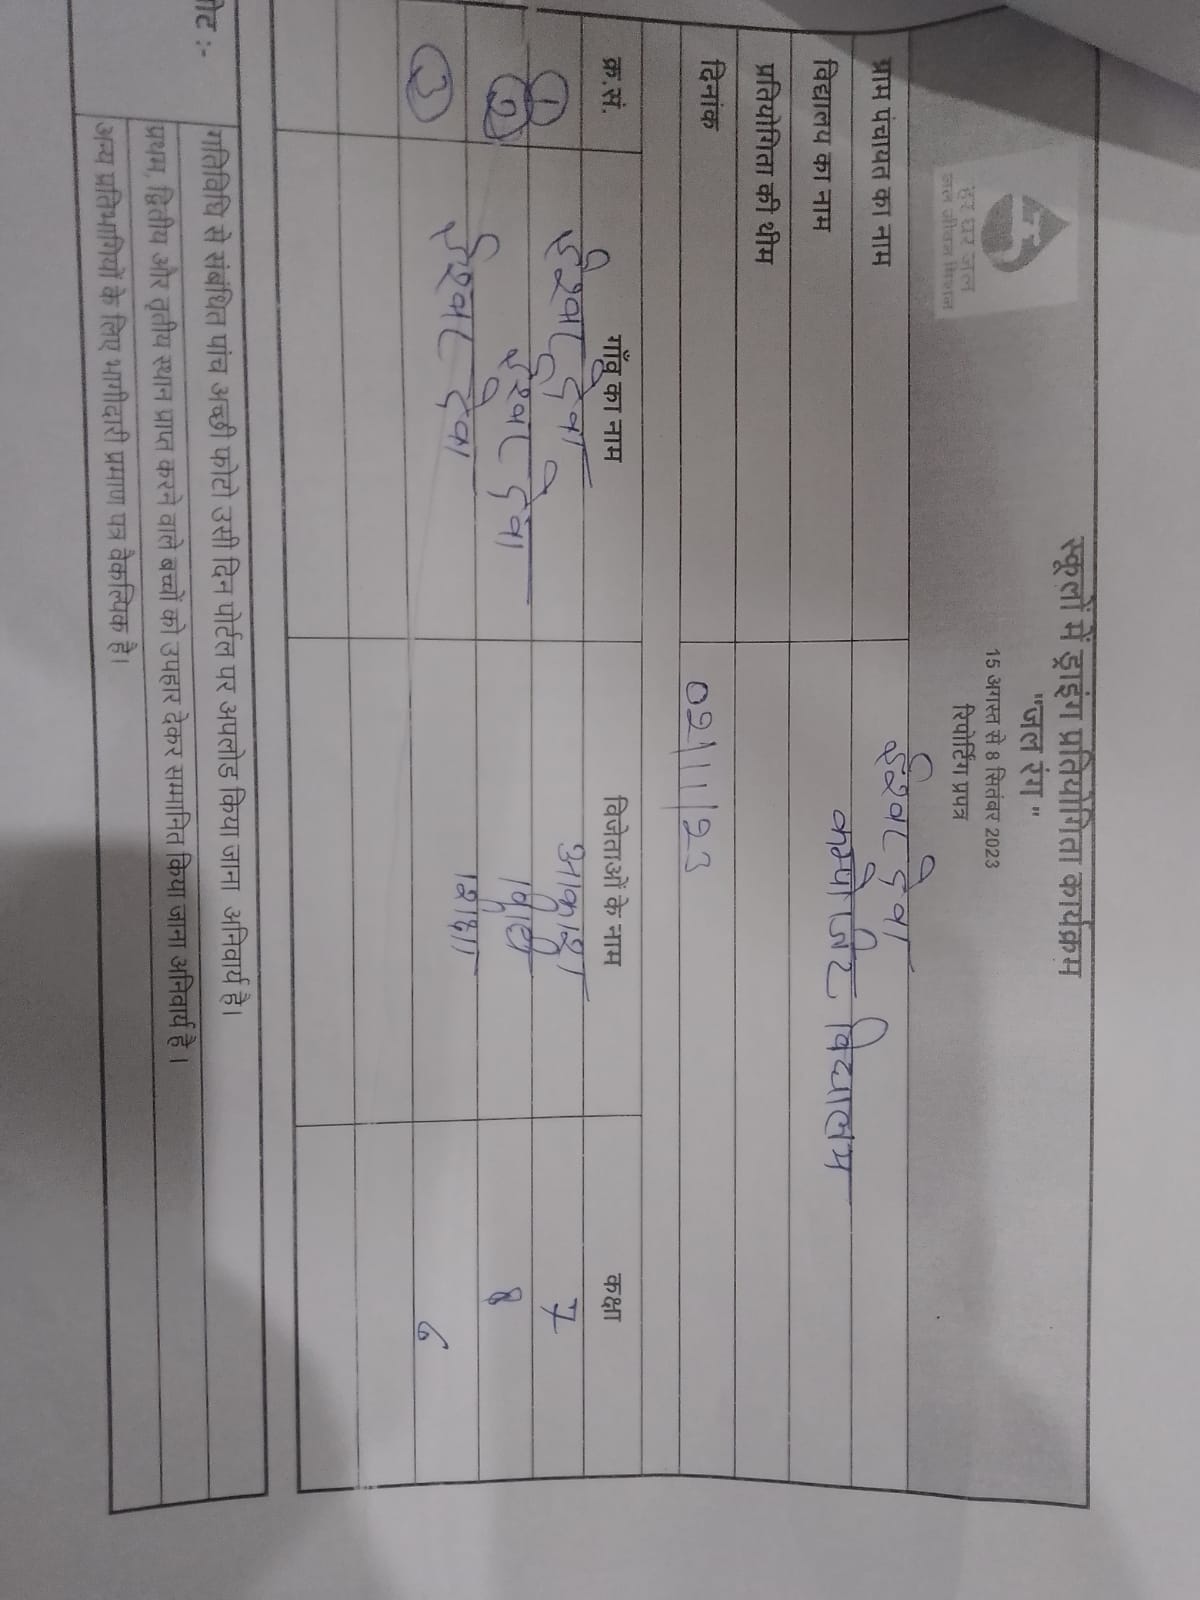 हर घर जल
जल जीवन मिशन
स्कूलों में ड्राइंग प्रतियोगिता कार्यक्रम
"जल रंग"
15 अगस्त से 8 सितंबर 2023
रिपोर्टिंग प्रपत्र
ग्राम पंचायत का नाम ईश्वर देवा
विद्यालय का नाम कम्पोजिट विद्यालय
प्रतियोगिता की थीम
दिनांक 02/11/23
क्र.सं. गाँव का नाम विजेताओं के नाम कक्षा
1 ईश्वर देवा आकाश 7
2 ईश्वर देवा 8
3 ईश्वर देवा 6
नोट :-
गतिविधि से संबंधित पांच अच्छी फोटो उसी दिन पोर्टल पर अपलोड किया जाना अनिवार्य है।
प्रथम, द्वितीय और तृतीय स्थान प्राप्त करने वाले बच्चों को उपहार देकर सम्मानित किया जाना अनिवार्य है।
अन्य प्रतिभागियों के लिए भागीदारी प्रमाण पत्र वैकल्पिक है।